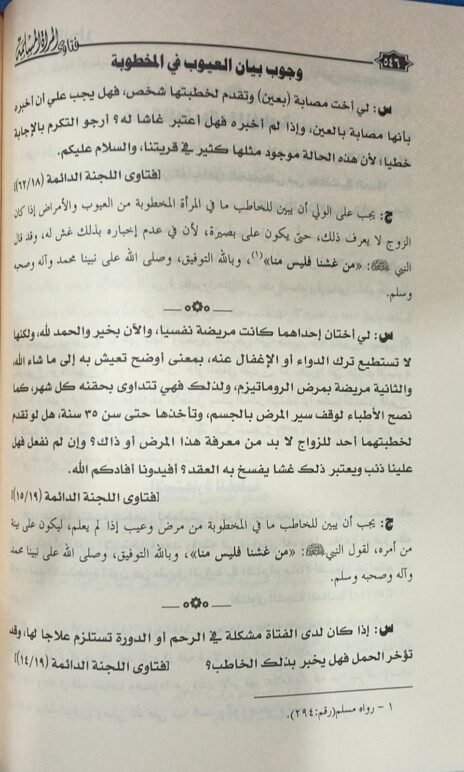 ٥٤٦
فتاوى المرأة المسلمة
وجوب بيان العيوب في المخطوبة
س: لي أخت مصابة (بعين) وتقدم لخطبتها شخص، فهل يجب علي أن أخبره
بأنها مصابة بالعين، وإذا لم أخبره فهل أعتبر غاشا له؟ أرجو التكرم بالإجابة
خطيا؛ لأن هذه الحالة موجود مثلها كثير في قريتنا، والسلام عليكم.
[فتاوى اللجنة الدائمة (٦٢/١٨)]
ج: يجب على الولي أن يبين للخاطب ما في المرأة المخطوبة من العيوب والأمراض إذا كان
الزوج لا يعرف ذلك، حتى يكون على بصيرة، لأن في عدم إخباره بذلك غش له، وقد قال
النبي ﷺ: «من غشنا فليس منا»(١)، وبالله التوفيق، وصلى الله على نبينا محمد وآله وصحبه
وسلم.
س: لي أختان إحداهما كانت مريضة نفسيا، والآن بخير والحمد لله، ولكنها
لا تستطيع ترك الدواء أو الإغفال عنه، بمعنى أوضح تعيش به إلى ما شاء الله،
والثانية مريضة بمرض الروماتيزم، ولذلك فهي تتداوى بحقنه كل شهر، كما
نصح الأطباء لوقف سير المرض بالجسم، وتأخذها حتى سن ٣٥ سنة، هل لو تقدم
لخطبتهما أحد للزواج لا بد من معرفة هذا المرض أو ذاك؟ وإن لم نفعل فهل
علينا ذنب ويعتبر ذلك غشا يفسخ به العقد؟ أفيدونا أفادكم الله.
[فتاوى اللجنة الدائمة (١٥/١٩)]
ج: يجب أن يبين للخاطب ما في المخطوبة من مرض وعيب إذا لم يعلم، ليكون على بينة
من أمره، لقول النبي ﷺ: «من غشنا فليس منا»، وبالله التوفيق، وصلى الله على نبينا محمد
وآله وصحبه وسلم.
س: إذا كان لدى الفتاة مشكلة في الرحم أو الدورة تستلزم علاجا لها، وقد
تؤخر الحمل فهل يخبر بذلك الخاطب؟ [فتاوى اللجنة الدائمة (١٤/١٩)]
١ - رواه مسلم (رقم: ٢٩٤).